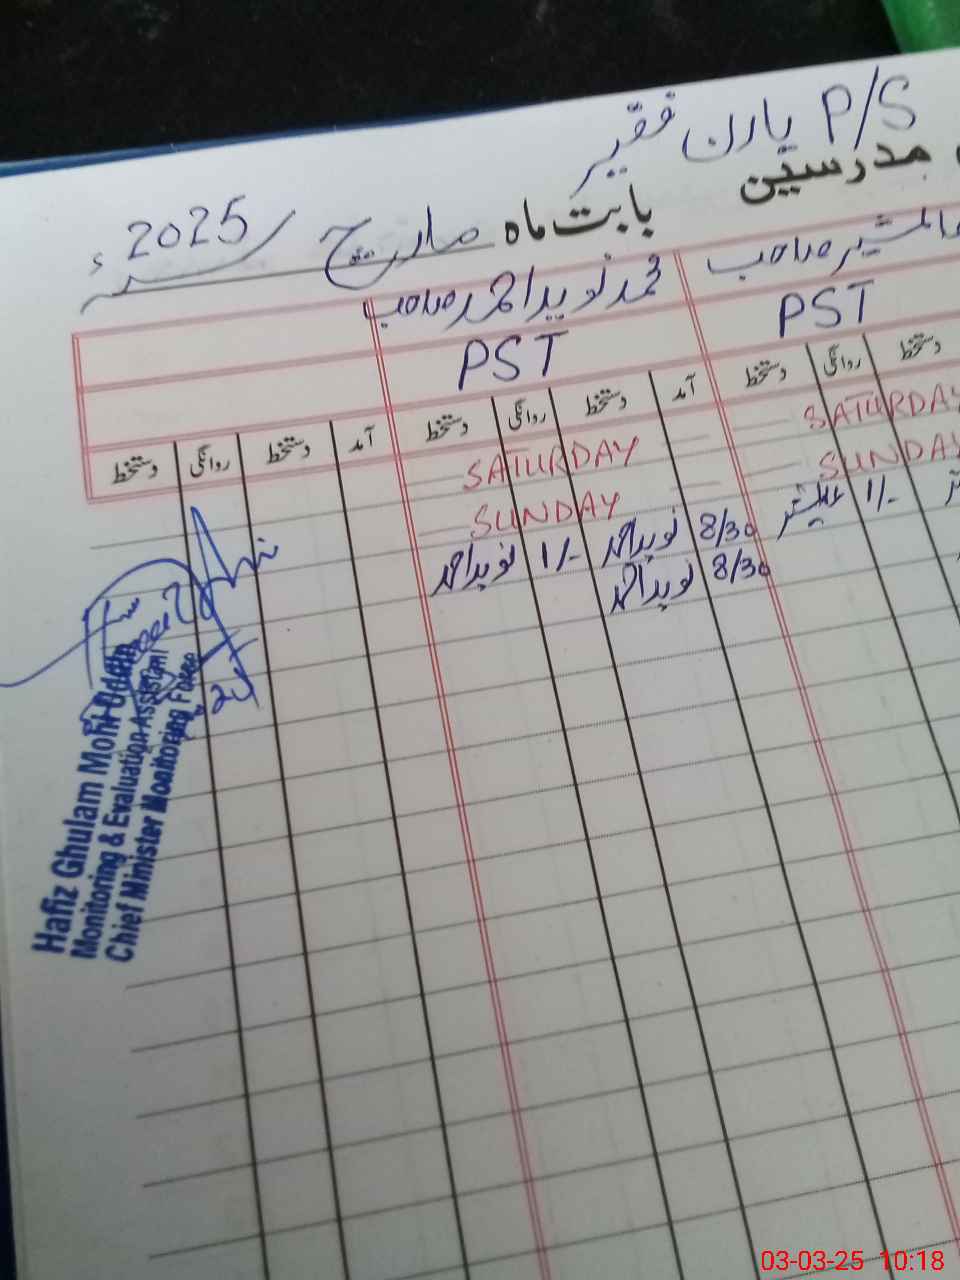 P/S یارن فقیر
مدرسین بابت ماہ مارچ 2025ء
عالمشیر صاحب محمد نوید احمد صاحب
PST PST
دستخط روانگی دستخط آمد دستخط روانگی دستخط آمد دستخط روانگی دستخط
SATURDAY SATURDAY
SUNDAY SUNDAY
1/- عالمشیر 8/30 نوید احمد 1/- نوید احمد
8/30 نوید احمد
Hafiz Ghulam Mohi Uddin
Monitoring & Evaluation Assistant
Chief Minister Monitoring Force
03-03-25 10:18